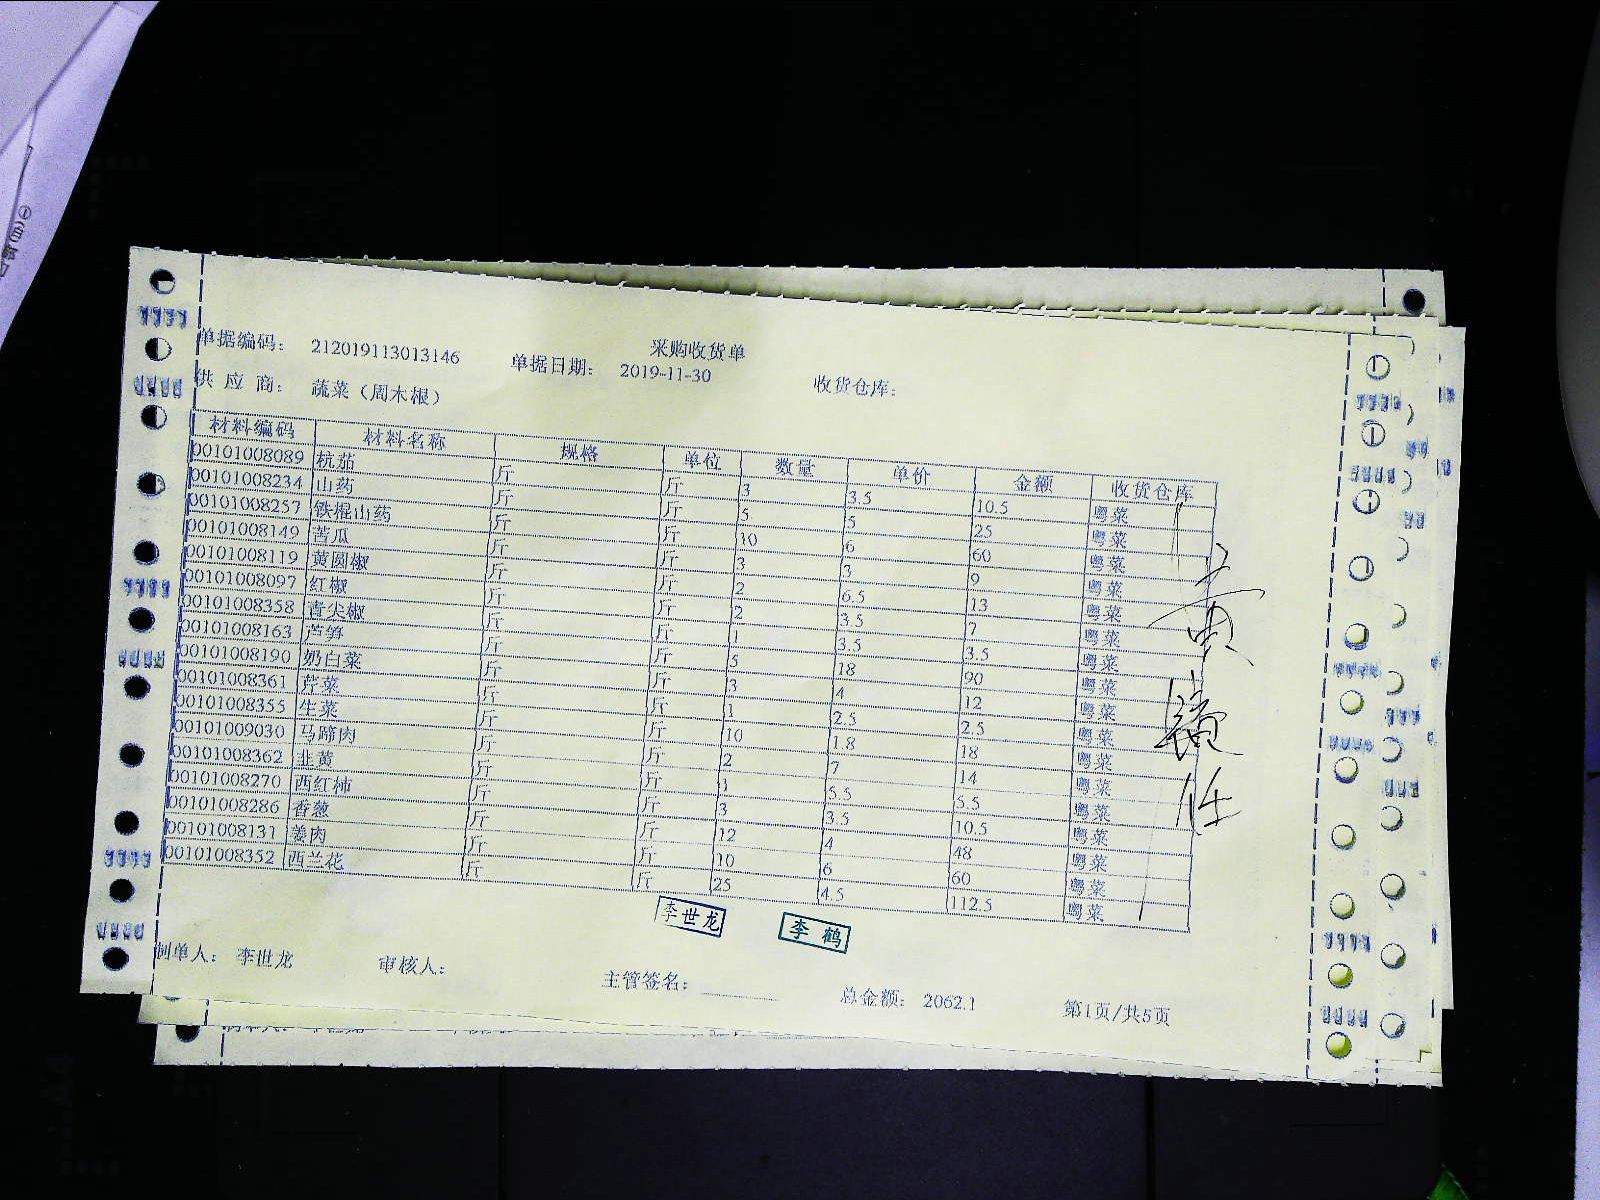 采购收货单
单据编码： 212019113013146 单据日期： 2019-11-30 收货仓库：
供 应 商： 蔬菜（周木根）
材料编码 材料名称 规格 单位 数量 单价 金额 收货仓库
00101008089 杭茄 斤 斤 3 3.5 10.5 粤菜
00101008234 山药 斤 斤 5 5 25 粤菜
00101008257 铁棍山药 斤 斤 10 6 60 粤菜
00101008149 苦瓜 斤 斤 3 3 9 粤菜
00101008119 黄圆椒 斤 斤 2 6.5 13 粤菜
00101008097 红椒 斤 斤 2 3.5 7 粤菜
00101008358 青尖椒 斤 斤 1 3.5 3.5 粤菜
00101008163 芦笋 斤 斤 5 18 90 粤菜
00101008190 奶白菜 斤 斤 3 4 12 粤菜
00101008361 芹菜 斤 斤 1 2.5 2.5 粤菜
00101008355 生菜 斤 斤 10 1.8 18 粤菜
00101009030 马蹄肉 斤 斤 2 7 14 粤菜
00101008362 韭黄 斤 斤 1 5.5 5.5 粤菜
00101008270 西红柿 斤 斤 3 3.5 10.5 粤菜
00101008286 香葱 斤 斤 12 4 48 粤菜
00101008131 姜肉 斤 斤 10 6 60 粤菜
00101008352 西兰花 斤 斤 25 4.5 112.5 粤菜
李世龙 李鹤
制单人： 李世龙 审核人： 主管签名： 总金额： 2062.1 第1页/共5页